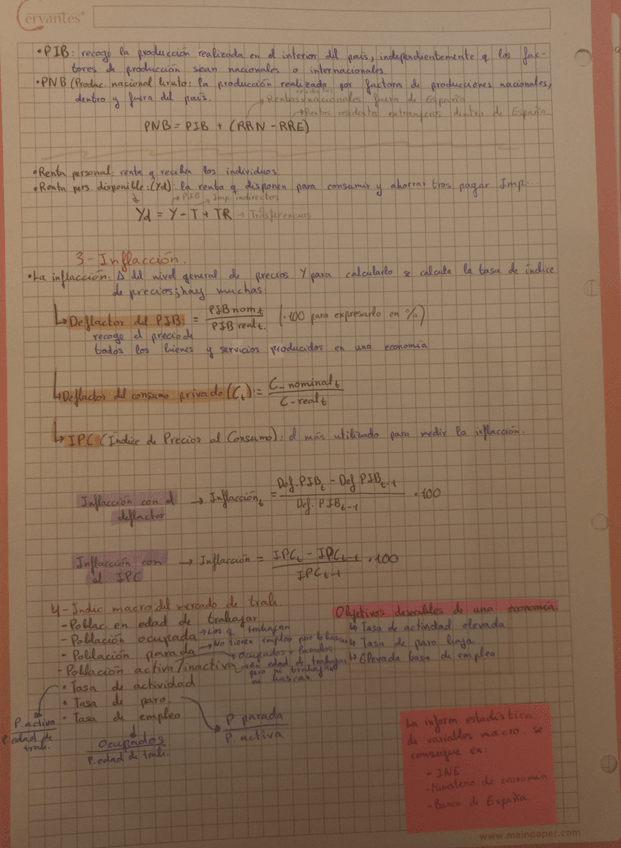 Cervantes
• PIB: recoge la producción realizada en el interior del país, independientemente q los fac-
tores de producción sean nacionales o internacionales.
• PNB (Produc. nacional bruto: la producción realizada por factores de producciones nacionales,
dentro y fuera del país.
Rentas nacionales fuera de España
Rentas residentes extranjeros dentro de España
PNB = PIB + (RRN - RRE)
• Renta personal: renta q reciben los individuos.
• Renta pers disponible: (Yd): la renta q disponen para consumir y ahorrar tras pagar Imp.
PIB Imp. indirectos
Yd = Y - T + TR → Trasferencias
3- Inflacción.
• La inflacción: Δ del nivel general de precios Y para calcularlo se calcula la tasa de índice
de precios; hay muchas:
↳ Deflactor del PIB: = PIB nom t / PIB real t (·100 para expresarlo en %)
recoge el precio de
todos los bienes y servicios producidos en una economía
↳ Deflactor del consumo privado (Ct) = C_nominal t / C-real t
↳ IPC (Índice de Precios al Consumo): el más utilizado para medir la inflacción.
Inflacción con el deflactor → Inflacción t = Def. PIB t - Def PIB t-1 / Def. PIB t-1 · 100
Inflacción con el IPC → Inflacción = IPC t - IPC t-1 / IPC t-1 · 100
4- Indic macro del mercado de trab.
- Poblac en edad de trabajar
- Población ocupada → Los q trabajan
- Población parada → No tienen empleo pero lo buscan
- Población activa/inactiva
Ocupados + parados
en edad de trabajar
pero ni trabajan
ni buscan
• Tasa de actividad
• Tasa de paro
• Tasa de empleo
P. activa / P. edad de trab.
P parada / P. activa
Ocupados / P. edad de trab.
Objetivos deseables de una economía
↳ Tasa de actividad elevada
↳ Tasa de paro baja
↳ Elevada tasa de empleo
La inform estadística
de variables macro. se
consigue en:
• INE
- Ministerio de economía
- Banco de España
www.mainpaper.com